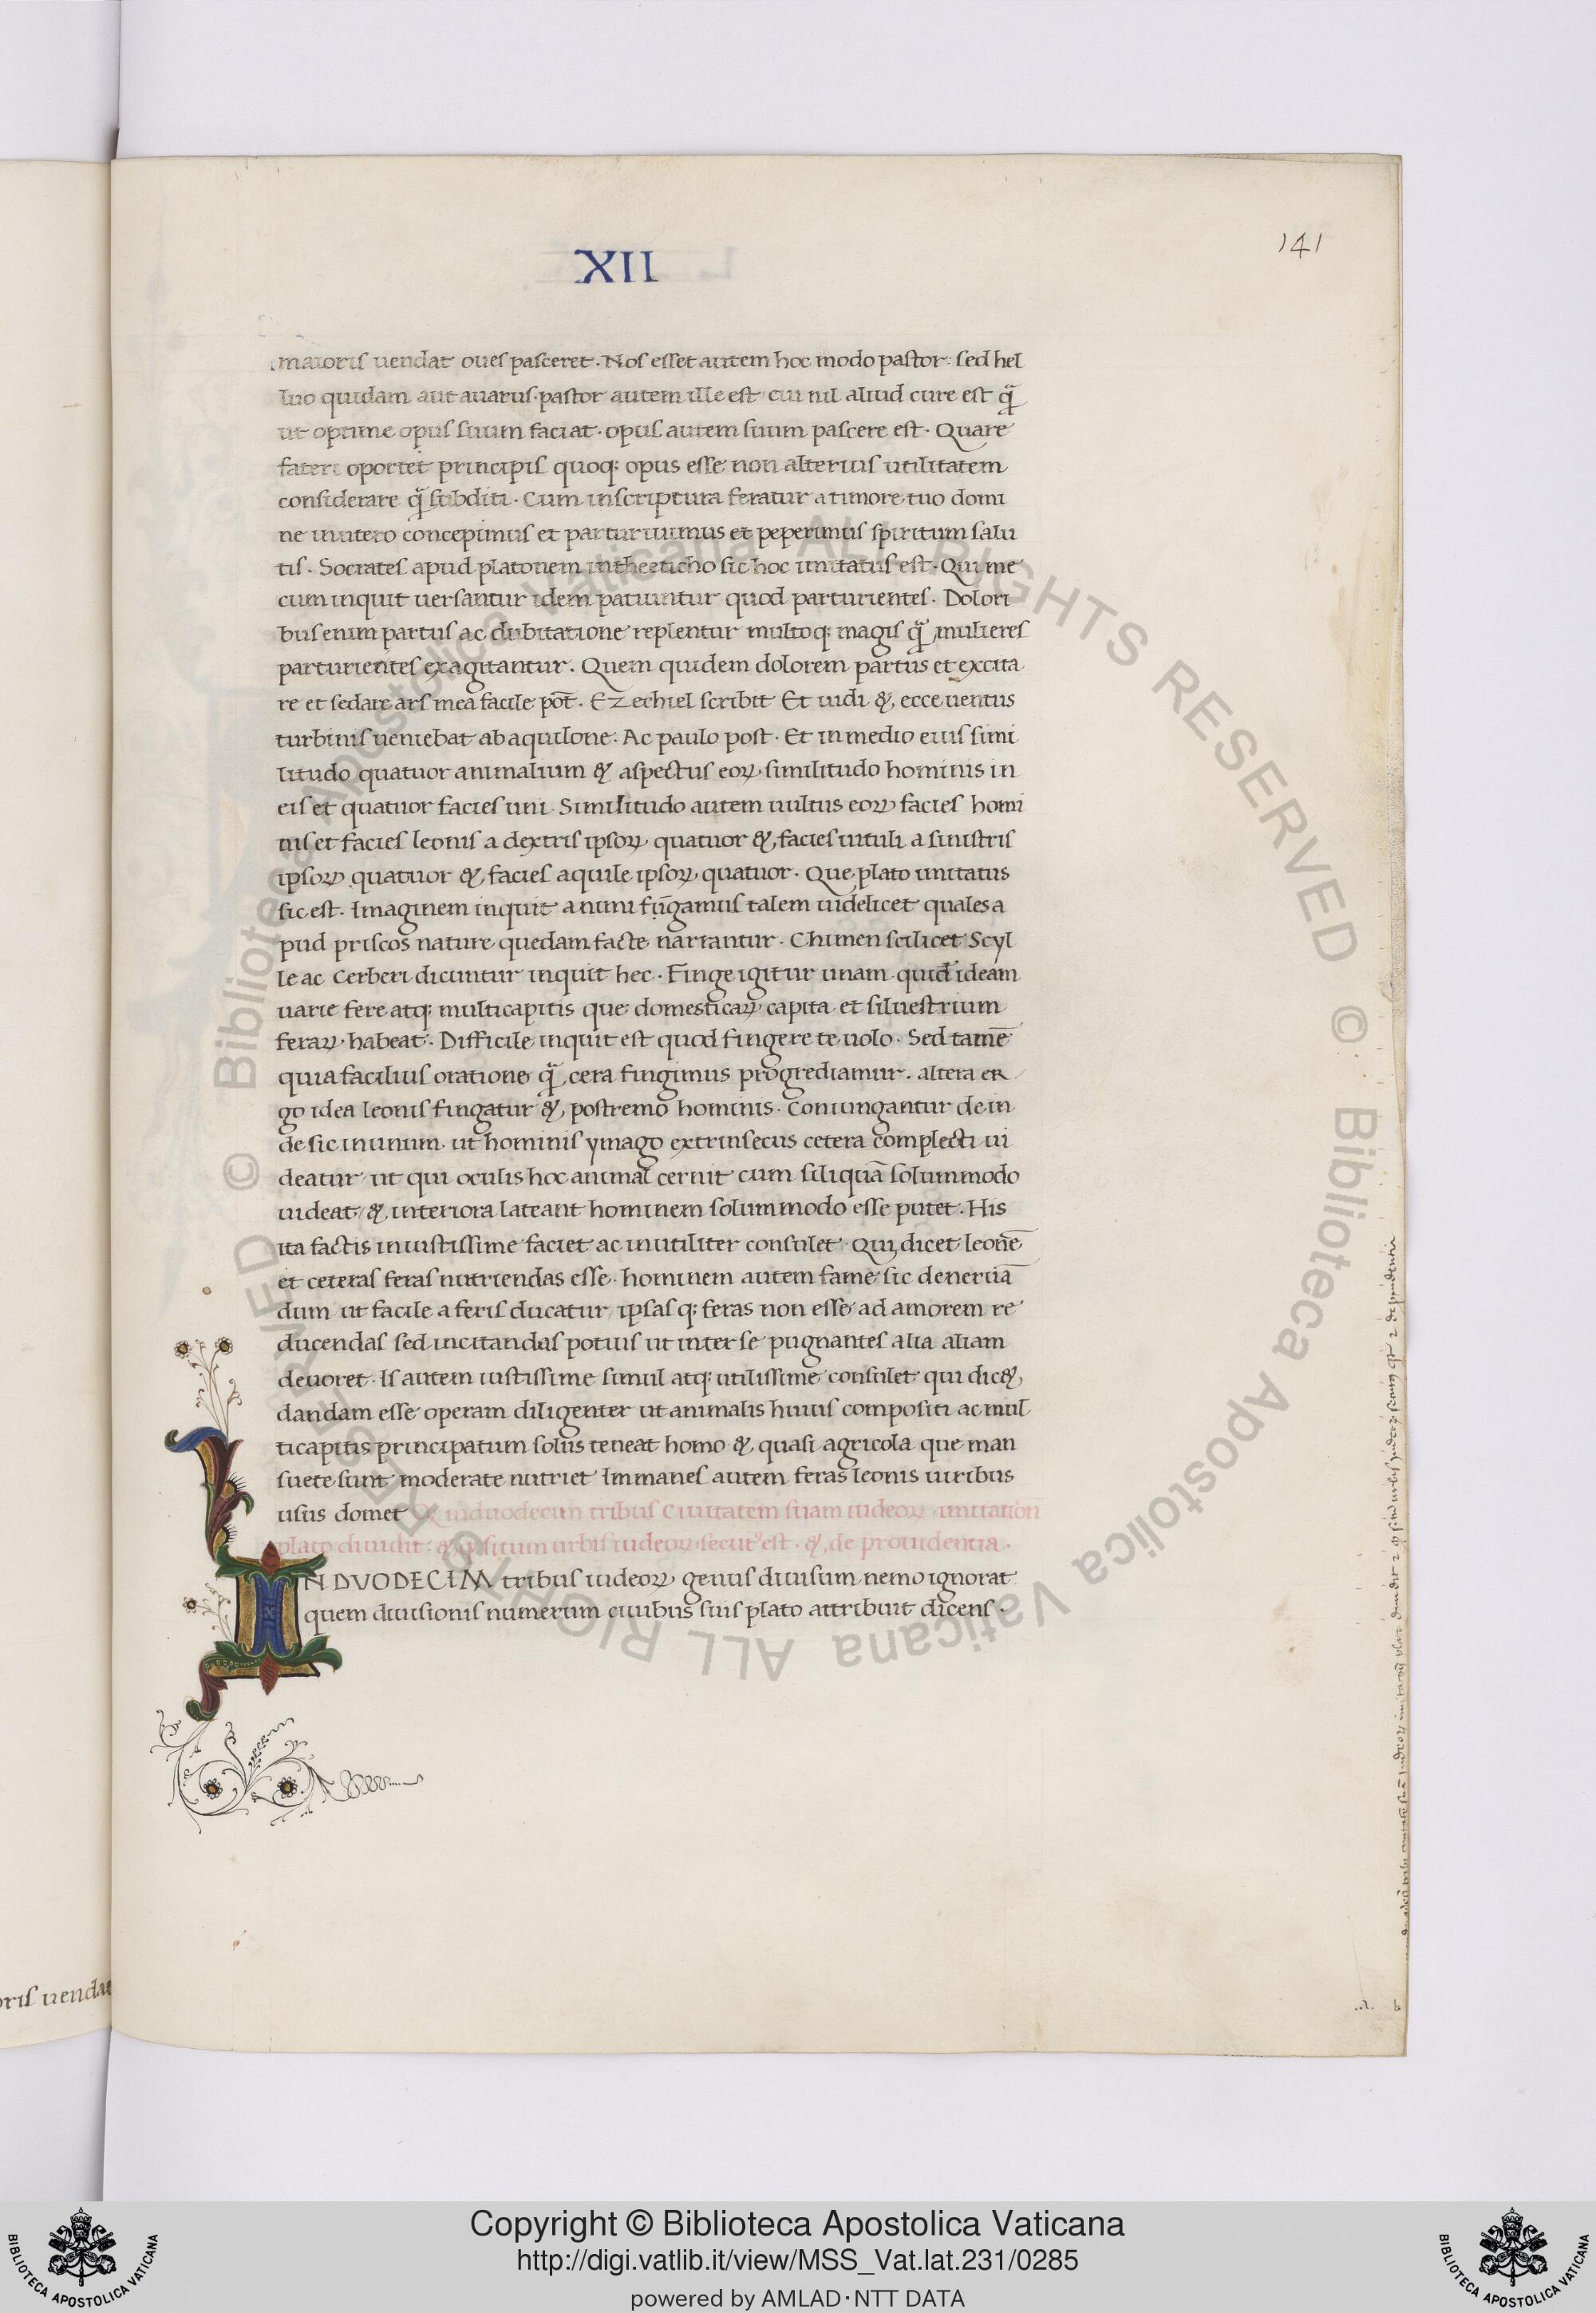 XII
141
maioris uendat oues pasceret. Nos esset autem hoc modo pastor: sed hel
luo quidam aut auarus. pastor autem ille est cui nil aliud cure est q̃
ut optime opus suum faciat. opus autem suum pascere est. Quare
fateri oportet principis quoq; opus esse non alterius utilitatem
considerare q̃ subditi. Cum inscriptura feratur atimore tuo domi
ne inutero concepimus et parturiuimus et peperimus spiritum salu
tis. Socrates apud platonem intheeticho sic hoc imitatus est. Qui me
cum inquit uersantur idem patiuntur quod parturientes. Dolori
bus enim partus ac dubitatione replentur multoq; magis q̃ mulieres
parturientes exagitantur. Quem quidem dolorem partus et excita
re et sedare ars mea facile pot̄. Ezechiel scribit Et uidi & ecce uentus
turbinis ueniebat ab aquilone. Ac paulo post. Et in medio eius simi
litudo quatuor animalium & aspectus eoꝝ similitudo hominis in
eis et quatuor facies uni. Similitudo autem uultus eoꝝ facies homi
nis et facies leonis a dextris ipsoꝝ quatuor & facies uituli a sinistris
ipsoꝝ quatuor & facies aquile ipsoꝝ quatuor. Que plato imitatus
sic est. Imaginem inquit animi fingamus talem uidelicet quales a
pud priscos nature quedam facte narrantur. Chimen scilicet Scyl
le ac Cerberi dicuntur inquit hec. Finge igitur unam quid̄ ideam
uarie fere atq; multicapitis que domesticaꝝ capita et siluestrium
feraꝝ habeat. Difficile inquit est quod fingere te uolo. Sed tamē
quia facilius oratione q̃ cera fingimus progrediamur. altera er
go idea leonis fingatur & postremo hominis. Coniungantur dein
de sic inunum. ut hominis ymago extrinsecus cetera complecti ui
deatur ut qui oculis hoc animal cernit cum siliquā solummodo
uideat & interiora lateant hominem solummodo esse putet. His
ita factis iniustissime faciet ac inutiliter consulet. Qui dicet leonē
et ceteras feras nutriendas esse. hominem autem fame sic deneruā
dum ut facile a feris ducatur ipsas q; feras non esse ad amorem re
ducendas sed incitandas potius ut inter se pugnantes alia aliam
deuoret. Is autem iustissime simul atq; utilissime consulet qui dic&
dandam esse operam diligenter ut animalis huius compositi ac mul
ticapitis principatum solus teneat homo & quasi agricola que man
suete sunt moderate nutriet Immanes autem feras leonis uiribus
usus domet Q induodecim tribus Ciuitatem suam iudeoꝝ imitatiōn
plato diuidit: & q situm urbis iudeoꝝ secut᾽ est. & de prouidentia.
IN DVODECIM tribus iudeoꝝ genus diuisum nemo ignorat
quem diuisionis numerum ciuibus suis plato attribuit dicens.
oris uendat
© Biblioteca Apostolica Vaticana ALL RIGHTS RESERVED © Biblioteca Apostolica Vaticana ALL RIGHTS RESERVED
Copyright © Biblioteca Apostolica Vaticana
http://digi.vatlib.it/view/MSS_Vat.lat.231/0285
powered by AMLAD·NTT DATA
BIBLIOTECA APOSTOLICA VATICANA
BIBLIOTECA APOSTOLICA VATICANA